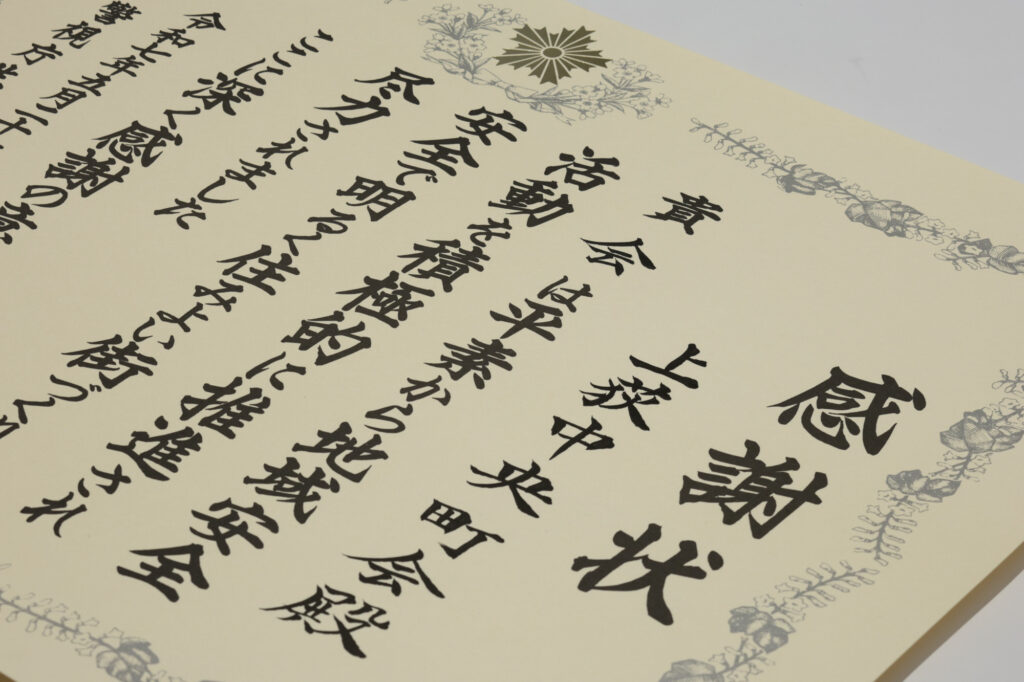 感謝状
上荻中央町会殿
貴会は平素から地域安全
活動を積極的に推進され
安全で明るく住みよい街づく
尽力されました
ここに深く感謝の意
令和七年五月二十
警視庁